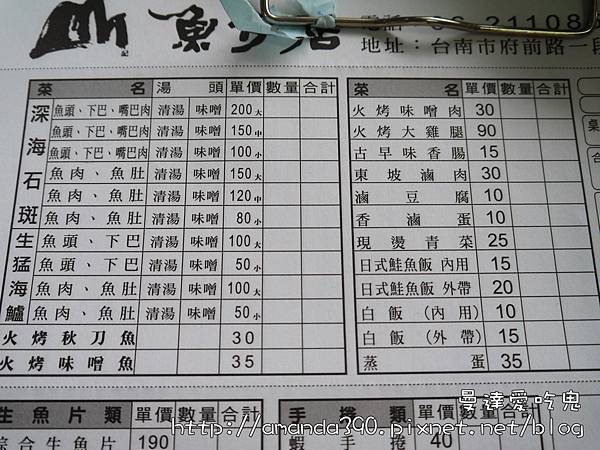 魚
電話：06-21108
地址：台南市府前路一段
菜名 湯頭 單價 數量 合計
深海石斑
魚頭、下巴、嘴巴肉 清湯 味噌 200大
魚頭、下巴、嘴巴肉 清湯 味噌 150中
魚頭、下巴、嘴巴肉 清湯 味噌 100小
魚肉、魚肚 清湯 味噌 150大
魚肉、魚肚 清湯 味噌 120中
魚肉、魚肚 清湯 味噌 80小
生猛海鱸
魚頭、下巴 清湯 味噌 100大
魚頭、下巴 清湯 味噌 50小
魚肉、魚肚 清湯 味噌 100大
魚肉、魚肚 清湯 味噌 50小
火烤秋刀魚 30
火烤味噌魚 35
菜名 單價 數量 合計
火烤味噌肉 30
火烤大雞腿 90
古早味香腸 15
東坡滷肉 30
滷豆腐 10
香滷蛋 10
現燙青菜 25
日式鮭魚飯 內用 15
日式鮭魚飯 外帶 20
白飯（內用） 10
白飯（外帶） 15
蒸蛋 35
桌
合
生魚片類 單價 數量 合計
綜合生魚片 190
手捲類 單價 數量 合計
蝦手捲 40
曼達愛吃鬼
http://amanda390.pixnet.net/blog